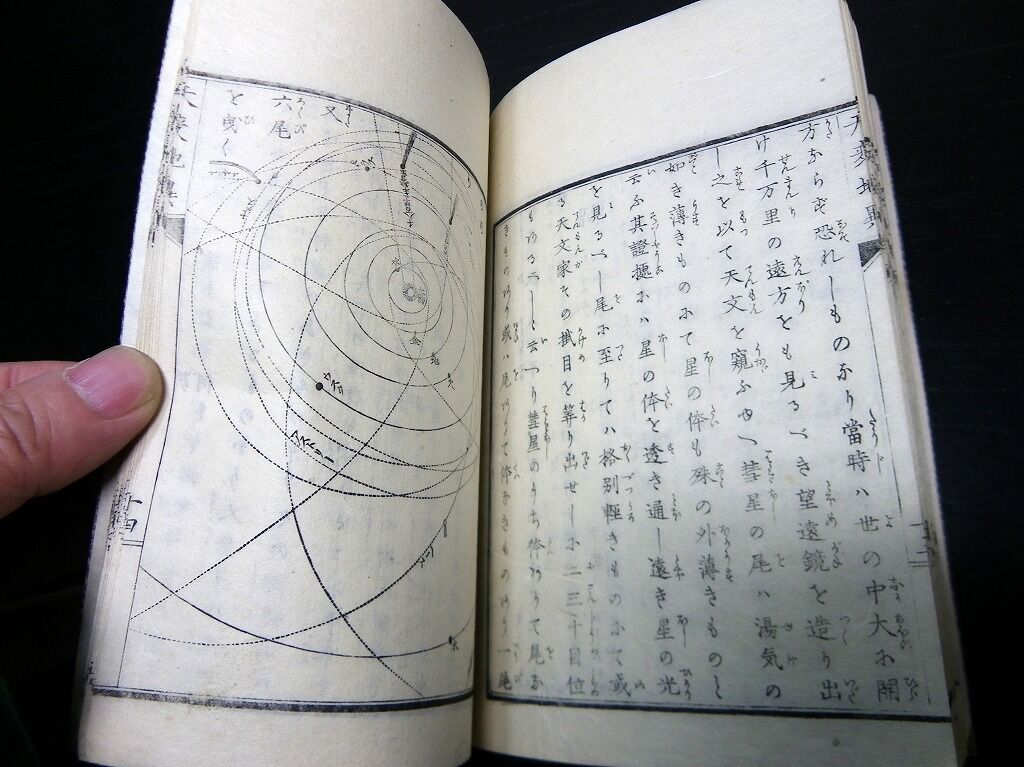 方ならず恐れしものなり當時ハ世の中大に開
け千万里の遠方をも見るべき望遠鏡を造り出
し之を以て天文を窺ふに彗星の尾ハ湯気の
如き薄きものにて星の体も殊の外薄きものと
云ふ其證拠にハ星の体を透き通し遠き星の光
を見るべし尾に至りてハ格別軽きものにて或
る天文家その掛目を算り出せしに二三十目位
もあるべしと云へり彗星のうち体ありて尾な
きものあり或ハ尾ありて体なきものあり一尾
又
六尾
を曳く
太陽
水
金
地
火
木
十四